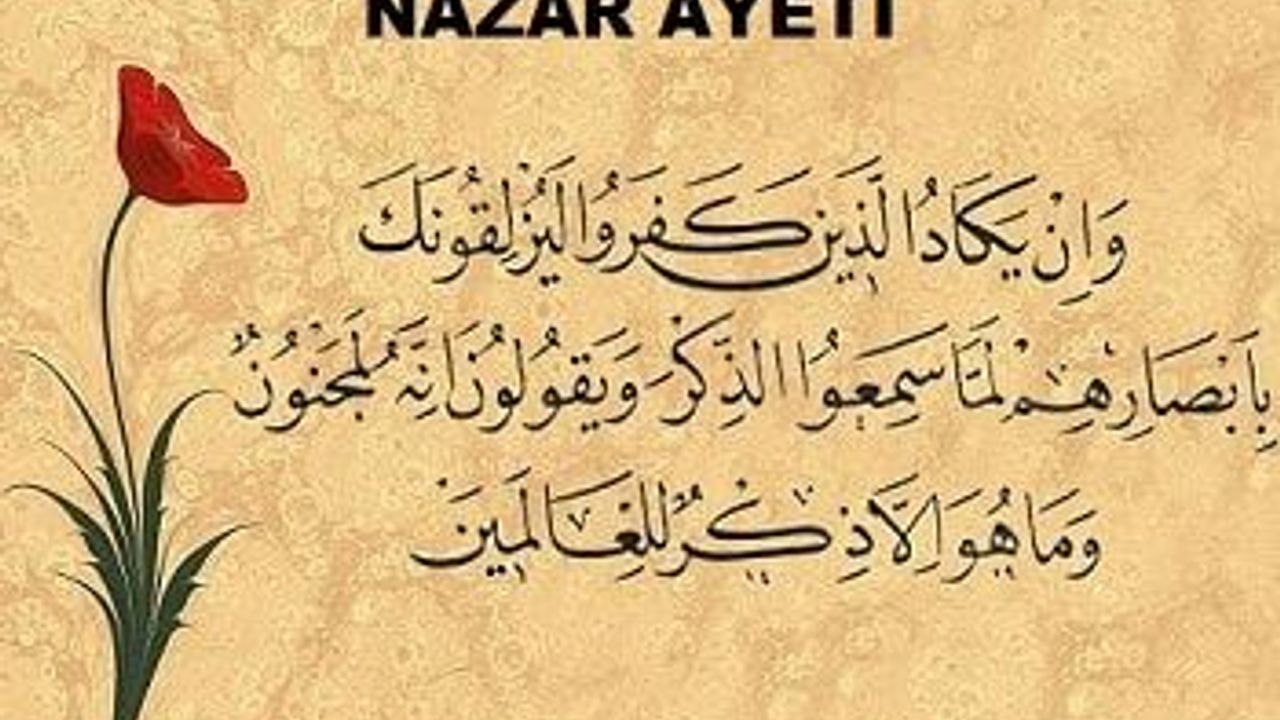 NAZAR AYETİ
وَاِنْ يَكَادُ الَّذِينَ كَفَرُوا لَيُزْلِقُونَكَ
بِاَبْصَارِهِمْ لَمَّا سَمِعُوا الذِّكْرَ وَيَقُولُونَ اِنَّهُ لَمَجْنُونٌ
وَمَا هُوَ اِلَّا ذِكْرٌ لِلْعَالَمِينَ